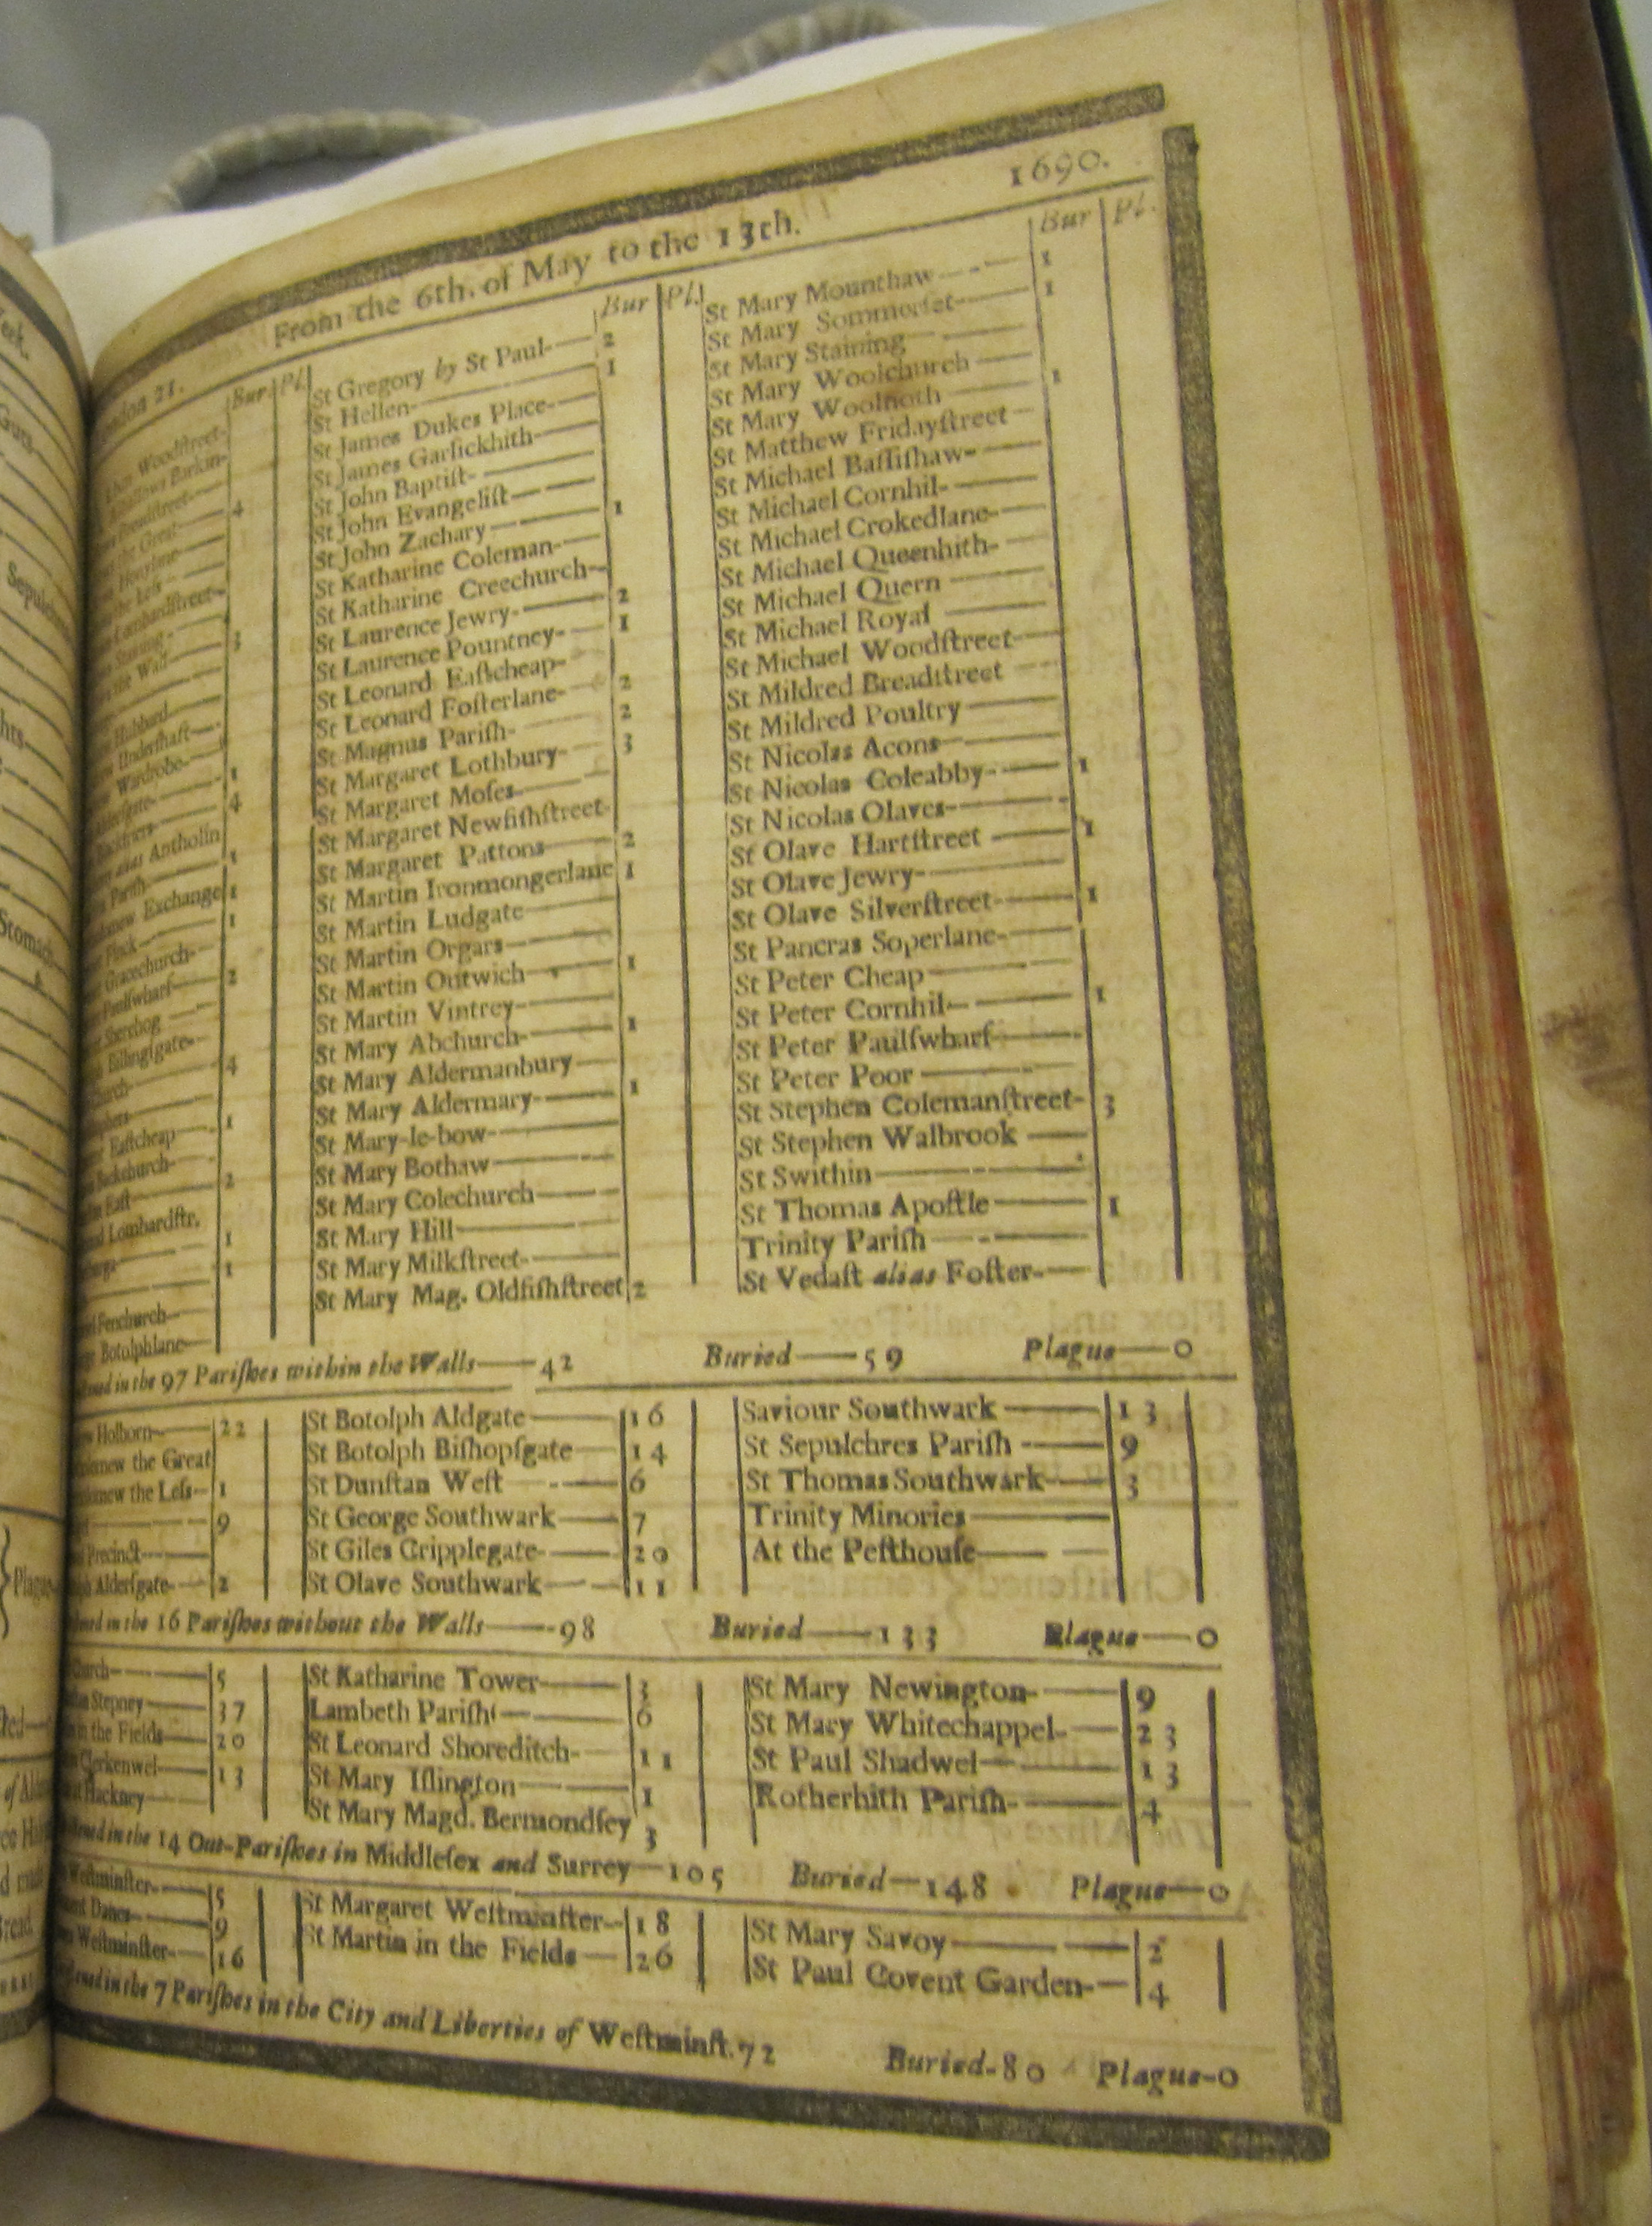 From the 6th. of May to the 13th. 1690.
Bur. Pl.
Woodstreet
Barkin
4
Lombardstreet
the Wall 3
Hubbard
Undershaft
Wardrobe
1
4
alias Antholin
Parish 1
Exchange 1
1
Gracechurch
Paulswharf 2
Sherehog
Bilingsgate
4
Eastcheap 1
East 2
Lombardstr.
1
1
Fenchurch
Botolphlane
Bur Pl.
St Gregory by St Paul 2
St Hellen 1
St James Dukes Place
St James Garlickhith
St John Baptist
St John Evangelist
St John Zachary 1
St Katharine Coleman
St Katharine Creechurch
St Laurence Jewry 2
St Laurence Pountney 1
St Leonard Eastcheap
St Leonard Fosterlane 2
St Magnus Parish 2
St Margaret Lothbury 3
St Margaret Moses
St Margaret Newfishstreet
St Margaret Pattons 2
St Martin Ironmongerlane 1
St Martin Ludgate
St Martin Orgars
St Martin Outwich 1
St Martin Vintrey
St Mary Abchurch 1
St Mary Aldermanbury
St Mary Aldermary 1
St Mary-le-bow
St Mary Bothaw
St Mary Colechurch
St Mary Hill
St Mary Milkstreet
St Mary Mag. Oldfishstreet 2
Bur Pl.
St Mary Mounthaw 1
St Mary Sommerset 1
St Mary Staining
St Mary Woolchurch
St Mary Woolnoth 1
St Matthew Fridaystreet
St Michael Bassishaw
St Michael Cornhil
St Michael Crokedlane
St Michael Queenhith
St Michael Quern
St Michael Royal
St Michael Woodstreet
St Mildred Breadstreet
St Mildred Poultry
St Nicolas Acons
St Nicolas Coleabby 1
St Nicolas Olaves
St Olave Hartstreet 1
St Olave Jewry
St Olave Silverstreet 1
St Pancras Soperlane
St Peter Cheap
St Peter Cornhil 1
St Peter Paulswharf
St Peter Poor
St Stephen Colemanstreet 3
St Stephen Walbrook
St Swithin
St Thomas Apostle 1
Trinity Parish
St Vedast alias Foster
in the 97 Parishes within the Walls 42 Buried 59 Plague 0
Holborn 22
the Great
the Less 1
9
Precinct
Aldersgate 2
St Botolph Aldgate 16
St Botolph Bishopsgate 14
St Dunstan West 6
St George Southwark 7
St Giles Cripplegate 20
St Olave Southwark 11
Saviour Southwark 13
St Sepulchres Parish 9
St Thomas Southwark 3
Trinity Minories
At the Pesthouse
in the 16 Parishes without the Walls 98 Buried 133 Plague 0
5
Stepney 37
in the Fields 20
Clerkenwel 13
Hackney
St Katharine Tower 3
Lambeth Parish 6
St Leonard Shoreditch 11
St Mary Islington 1
St Mary Magd. Bermondsey 3
St Mary Newington 9
St Mary Whitechappel 23
St Paul Shadwel 13
Rotherhith Parish 4
in the 14 Out-Parishes in Middlesex and Surrey 105 Buried 148 Plague 0
Westminster 5
Danes 9
Westminster 16
St Margaret Westminster 18
St Martin in the Fields 26
St Mary Savoy 2
St Paul Covent Garden 4
in the 7 Parishes in the City and Liberties of Westminst. 72 Buried 80 Plague 0